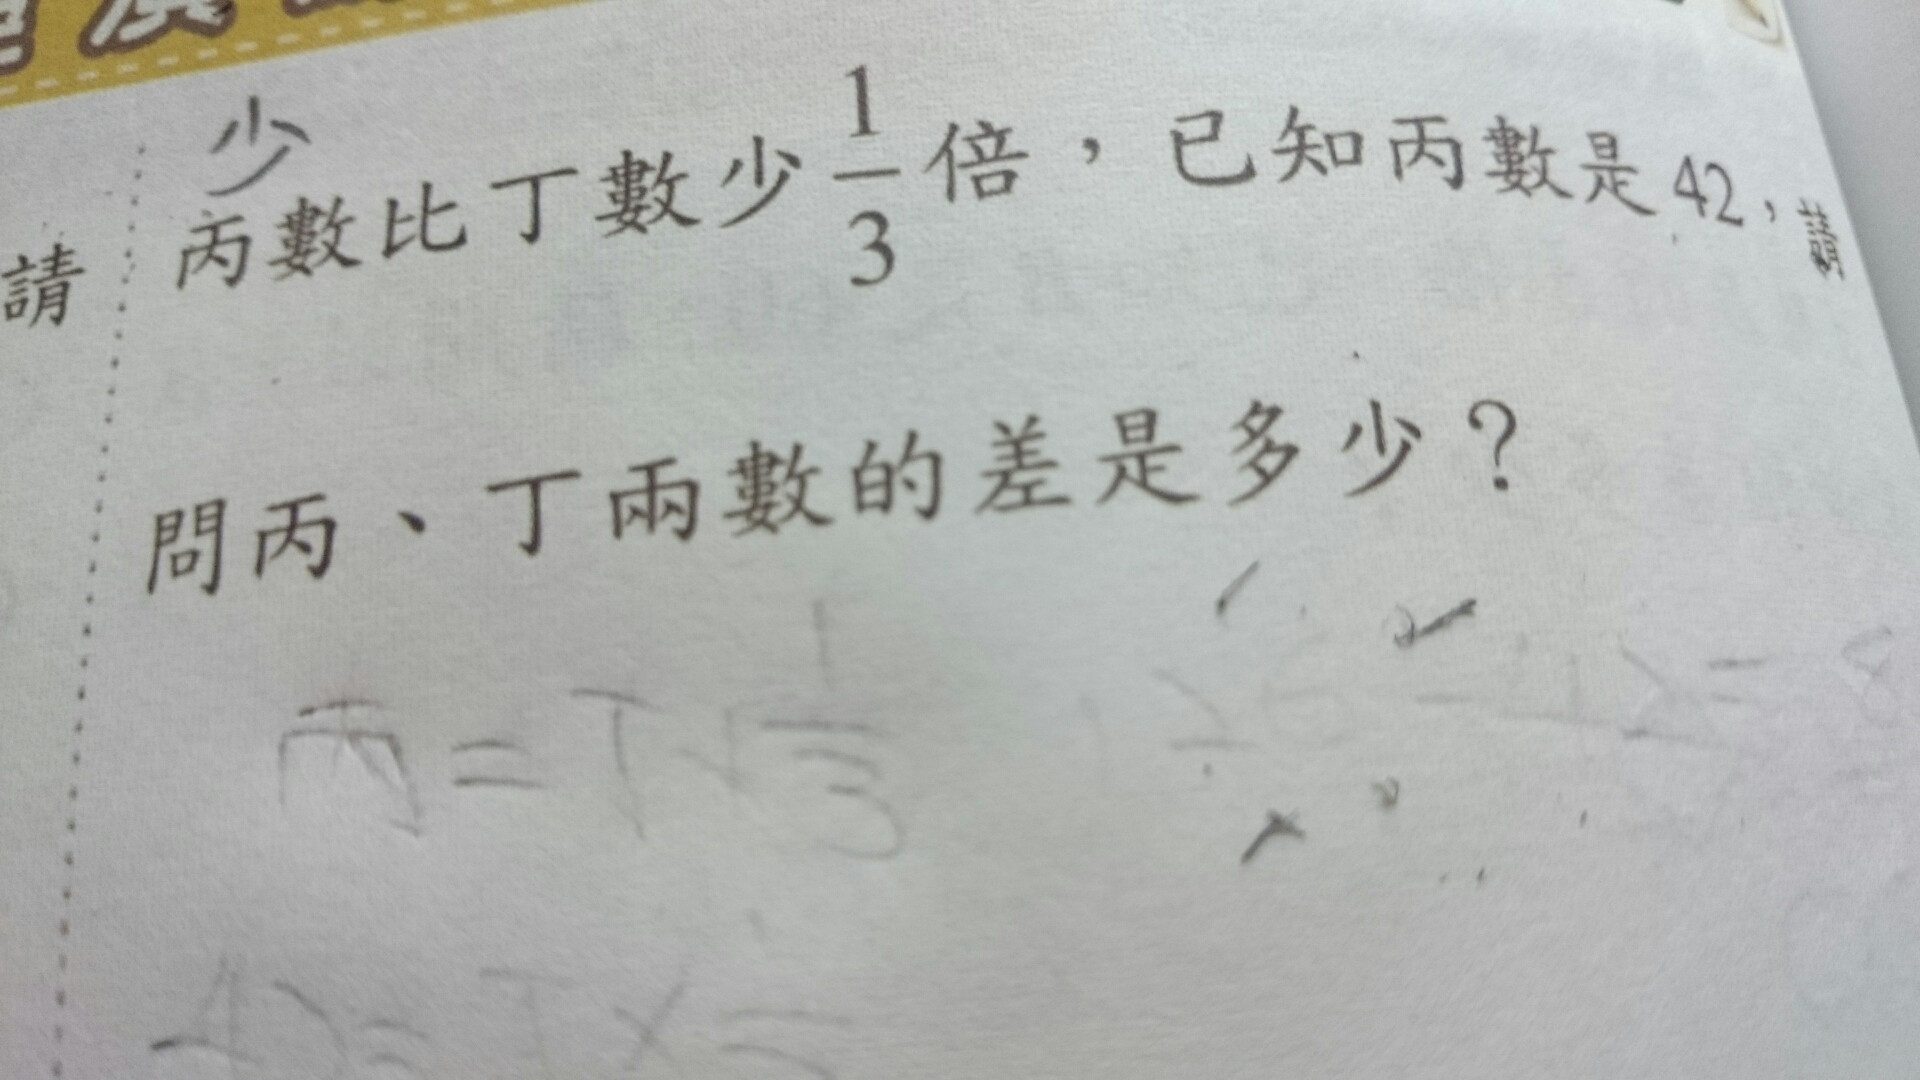 少
丙數比丁數少 1/3 倍，已知丙數是42，請
請
問丙、丁兩數的差是多少？
丙=丁×1/3
42=丁×